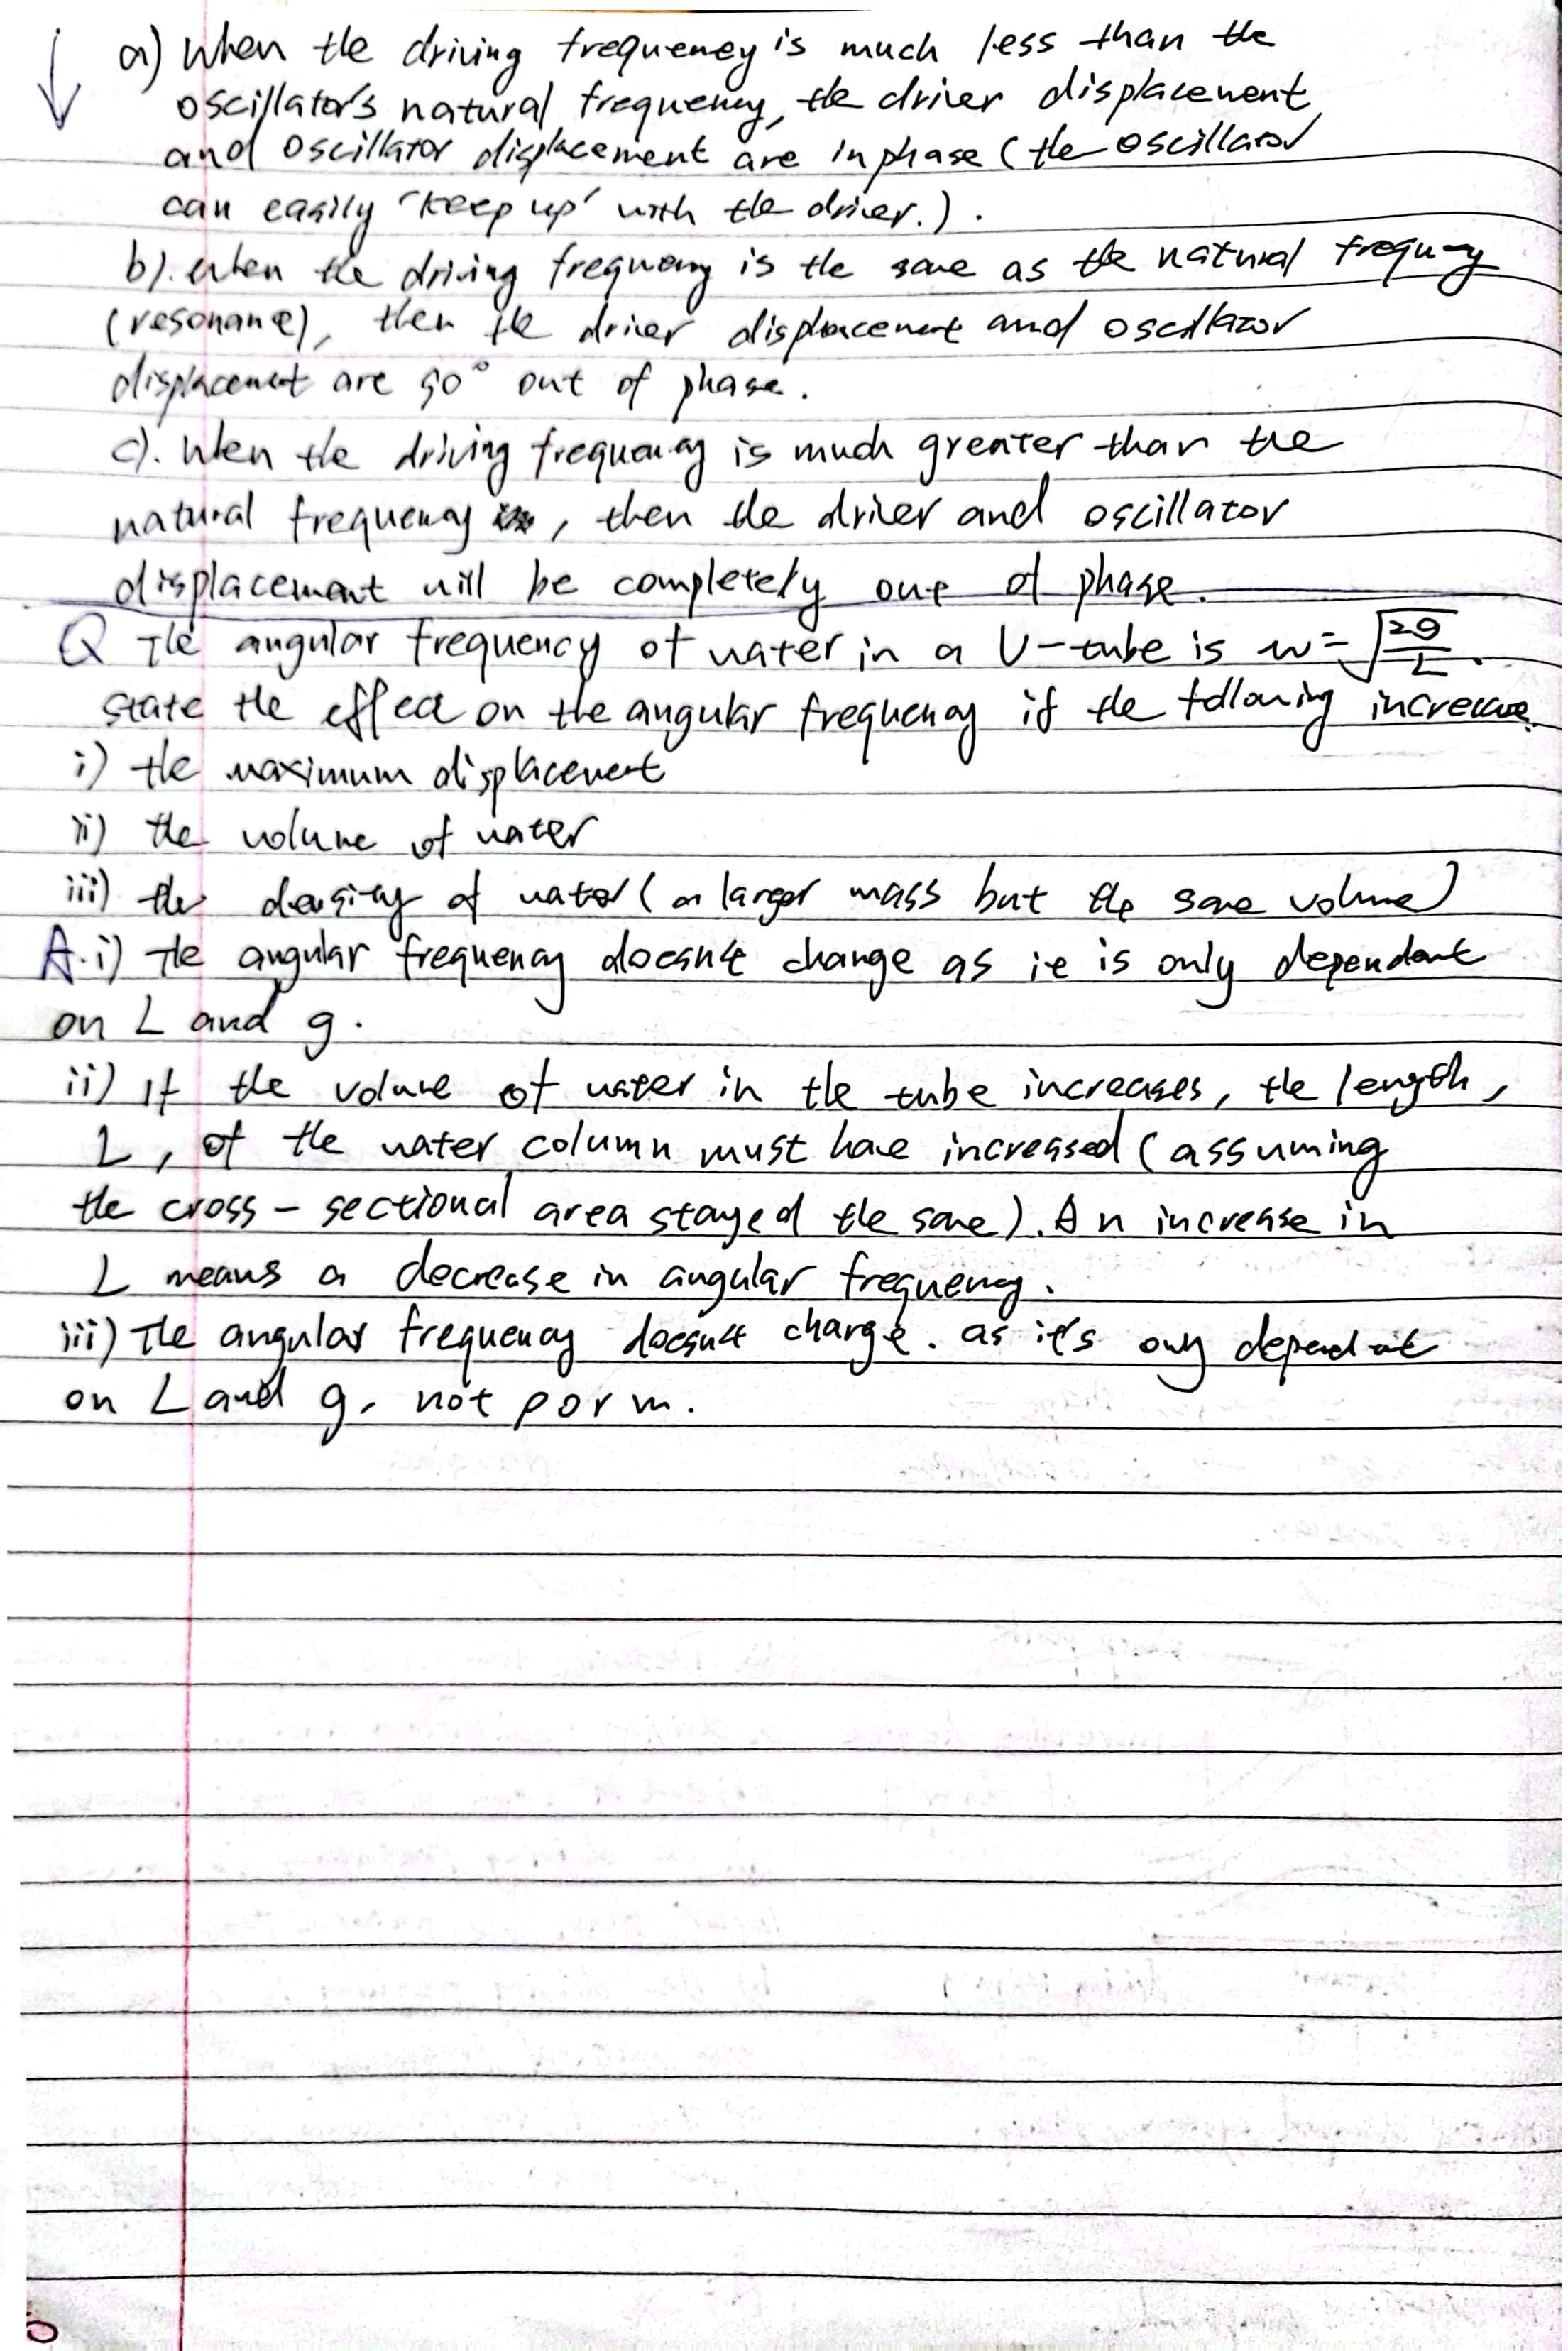 a) When the driving frequency is much less than the
oscillator's natural frequency, the driver displacement
and oscillator displacement are in phase (the oscillator
can easily 'keep up' with the driver.).
b). when the driving frequency is the same as the natural frequency
(resonance), then the driver displacement and oscillator
displacement are 90° out of phase.
c). When the driving frequency is much greater than the
natural frequency, then the driver and oscillator
displacement will be completely out of phase.
Q The angular frequency of water in a U-tube is w=√2g/L.
state the effect on the angular frequency if the following increase.
i) the maximum displacement
ii) the volume of water
iii) the density of water (a larger mass but the same volume)
A. i) The angular frequency doesn't change as it is only dependent
on L and g.
ii) If the volume of water in the tube increases, the length,
L, of the water column must have increased (assuming
the cross-sectional area stayed the same). An increase in
L means a decrease in angular frequency.
iii) The angular frequency doesn't change. as it's only dependent
on L and g, not ρ or m.